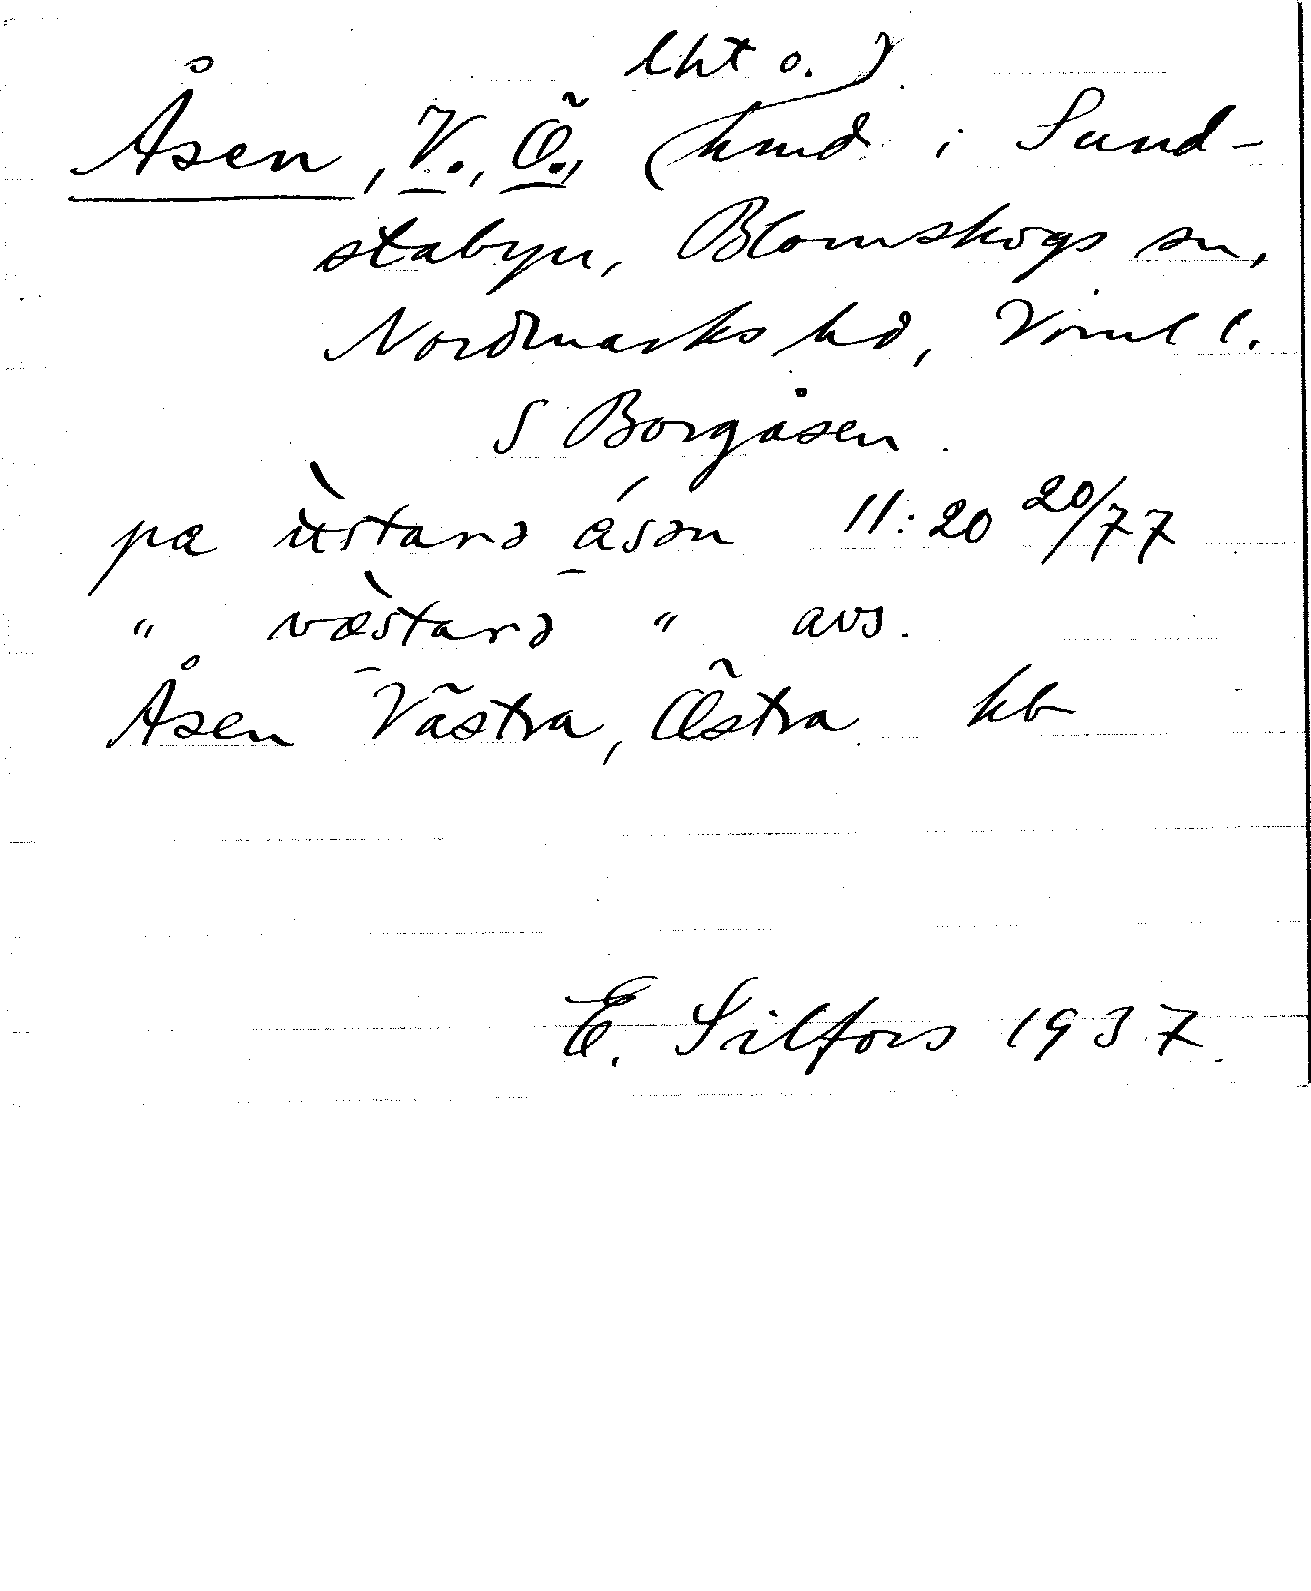 lht o.
Åsen, V., Ö., hmd i Sund-
stabyn, Blomskogs sn,
Nordmarks hd, Värml l.
S Borgåsen
pa ùstarə ásən 11:20 20/77
" væ̀starə " avs.
Åsen Västra, Östra kb
E. Silfors 1937